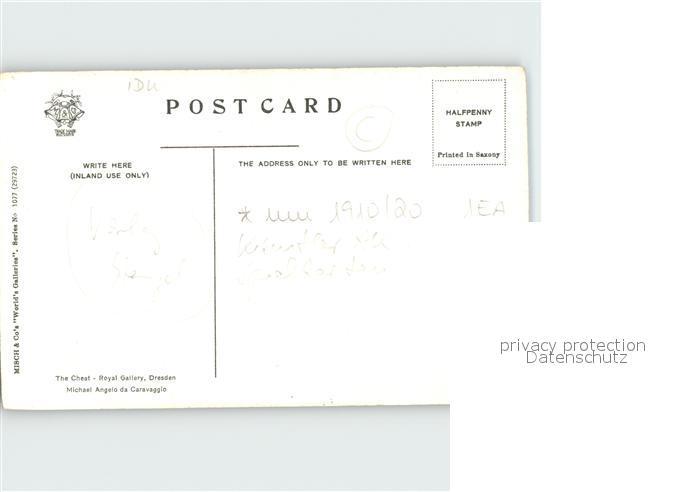 POST CARD
HALFPENNY
STAMP
Printed in Saxony
M & C
TRADE MARK
WRITE HERE
(INLAND USE ONLY)
THE ADDRESS ONLY TO BE WRITTEN HERE
C
* 1910/20 1EA
Verlag
MISCH & Co's "World's Galleries". Series No 1077 (29723)
The Chest - Royal Gallery, Dresden
Michael Angelo da Caravaggio
privacy protection
Datenschutz